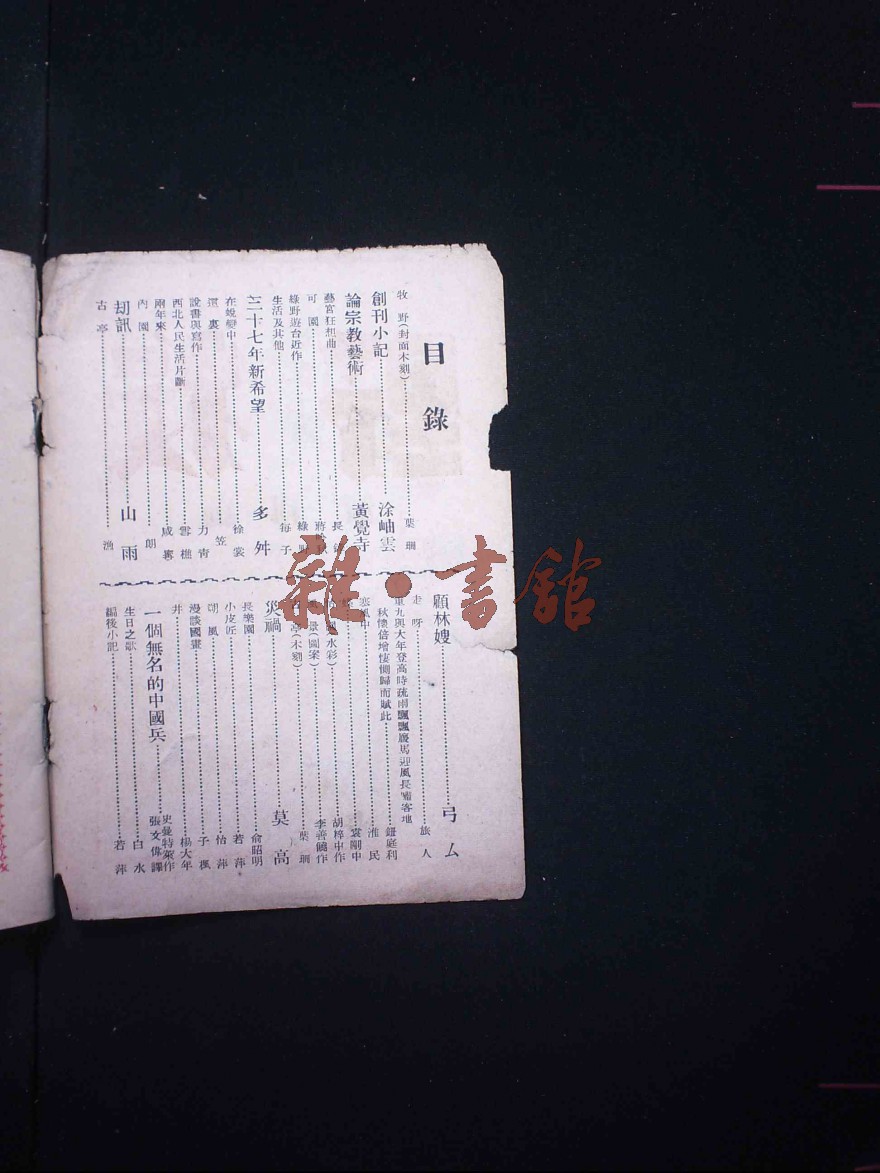 目錄
牧野(封面木刻)……葉珊
創刊小記……涂岫雲
論宗教藝術……黃覺寺
藝宮狂想曲……長
可園……蔣
綠野遊台近作……綠野
生活及其他……每子
三十七年新希望……多舛
在蛻變中……徐裳
這裏……笠
說書與寫作……力青
西北人民生活片斷……雲樵
兩年來……咸寧
內園……朗
劫訊……山雨
古亭……漁
顧林嫂……弓厶
走呀……旅人
重九與大年登高時疏雨飄飄麈馬迎風長嘯客地
秋懷倍增悽惻歸而賦此……鈕庭利
寒風中……淮民
袁剛中
水彩)……胡梓中作
景(圖案)……李善鶴作
亭(木刻)……葉珊
災禍……莫高
長樂園……俞昭明
小皮匠……若萍
朔風……怡萍
漫談國畫……子楓
井……楊大年
一個無名的中國兵……史曼特萊作
張文偉譯
生日之獻……白水
編後小記……若萍
雜·書館